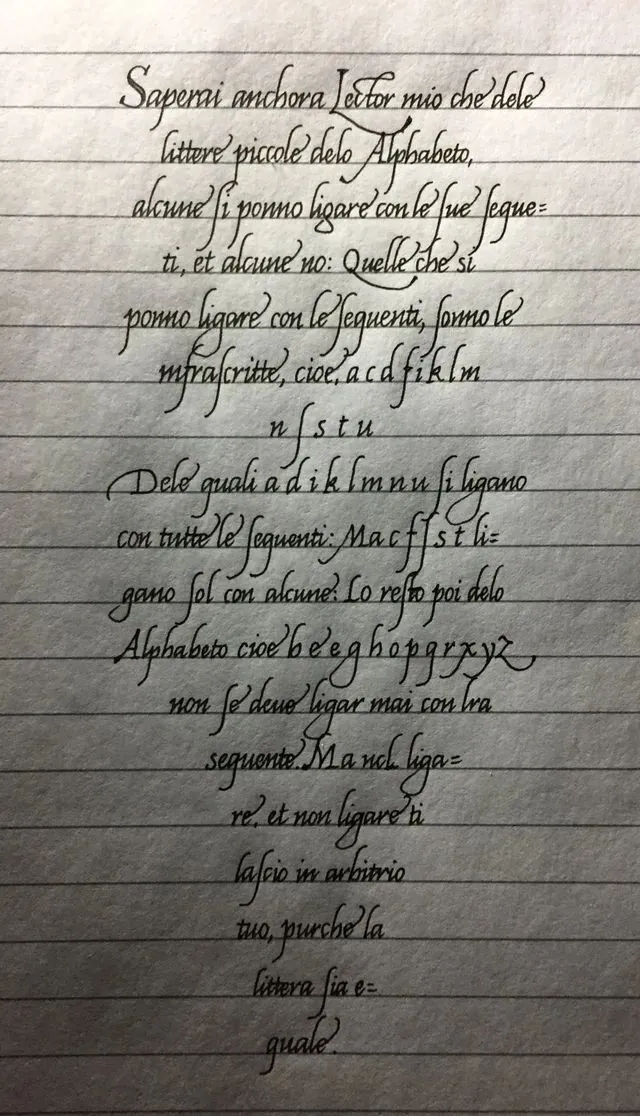 Saperai anchora Lector mio che dele
littere piccole delo Alphabeto,
alcune ſi ponno ligare con le ſue ſegue=
ti, et alcune no: Quelle che si
ponno ligare con le ſequenti, ſonno le
infraſcritte, cioe, a c d f i k l m
n ſ s t u
Dele quali a d i k l m n u ſi ligano
con tutte le ſequenti: Ma c f ſ s t li=
gano ſol con alcune: Lo reſto poi delo
Alphabeto cioe b e e g h o p q r x y z
non ſe deue ligar mai con lra
sequente. Ma nel liga=
re, et non ligare ti
laſcio in arbitrio
tuo, purche la
littera ſia e=
quale.